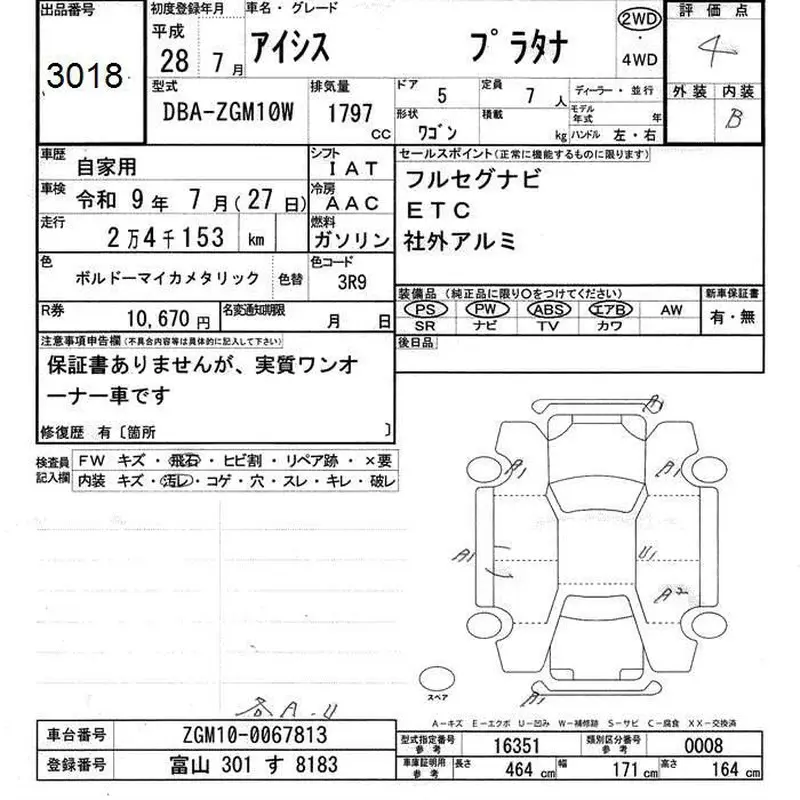 出品番号
3018
初度登録年月
平成
28 7月
車名・グレード
アイシス プラタナ
2WD
・
4WD
評価点
4
外装 内装
B
型式
DBA-ZGM10W
排気量
1797 cc
ドア
5
定員
7 人
形状
ワゴン
積載
kg
ディーラー・並行
モデル年式 年
ハンドル 左・右
車歴
自家用
シフト
IAT
車検
令和 9年 7月(27日)
冷房
AAC
走行
2万4千153 km
燃料
ガソリン
色
ボルドーマイカメタリック
色替
色コード
3R9
R券
10,670 円
名変通知期限
月 日
セールスポイント(正常に機能するものに限ります)
フルセグナビ
ETC
社外アルミ
装備品 (純正品に限り○をつけてください)
PS PW ABS エアB AW
SR ナビ TV カワ
新車保証書
有・無
後日品
注意事項申告欄(不具合内容等は具体的に記入して下さい)
保証書ありませんが、実質ワンオ
ーナー車です
修復歴 有〔箇所 〕
検査員記入欄
FW キズ・飛石・ヒビ割・リペア跡・×要
内装 キズ・汚レ・コゲ・穴・スレ・キレ・破レ
A1
A1
A1
A1
U1
A2
A1
スペア
各A.U
A-キズ E-エクボ U-凹み W-補修跡 S-サビ C-腐食 XX-交換済
車台番号
ZGM10-0067813
登録番号
富山 301 す 8183
型式指定番号参考
16351
類別区分番号参考
0008
車庫証明用参考
長さ 464 cm 幅 171 cm 高さ 164 cm